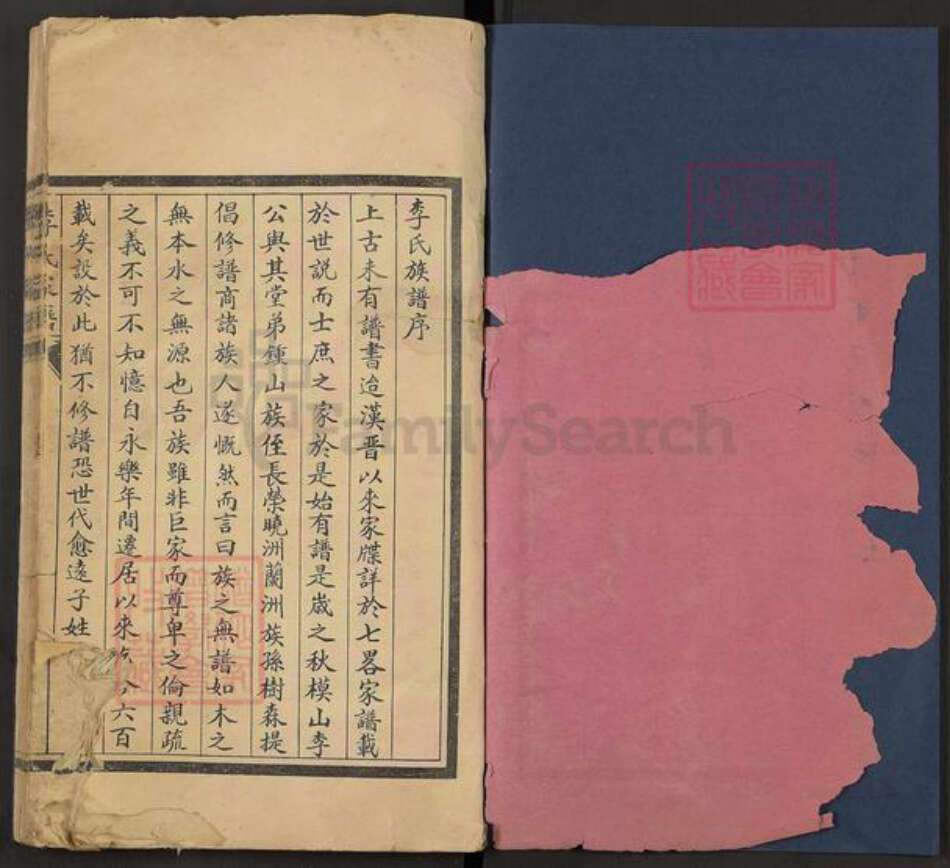 李氏族譜序
上古未有譜書迨漢晋以來家牒詳於七畧家譜載
於世説而士庶之家於是始有譜是歲之秋模山李
公與其堂弟鍾山族侄長榮曉洲蘭洲族孫樹森提
倡修譜商諸族人遂慨然而言曰族之無譜如木之
無本水之無源也吾族雖非巨家而尊卑之倫親疏
之義不可不知憶自永樂年間遷居以來六百
載矣設於此猶不修譜恐世代愈遠子姓
李氏族譜
FamilySearch